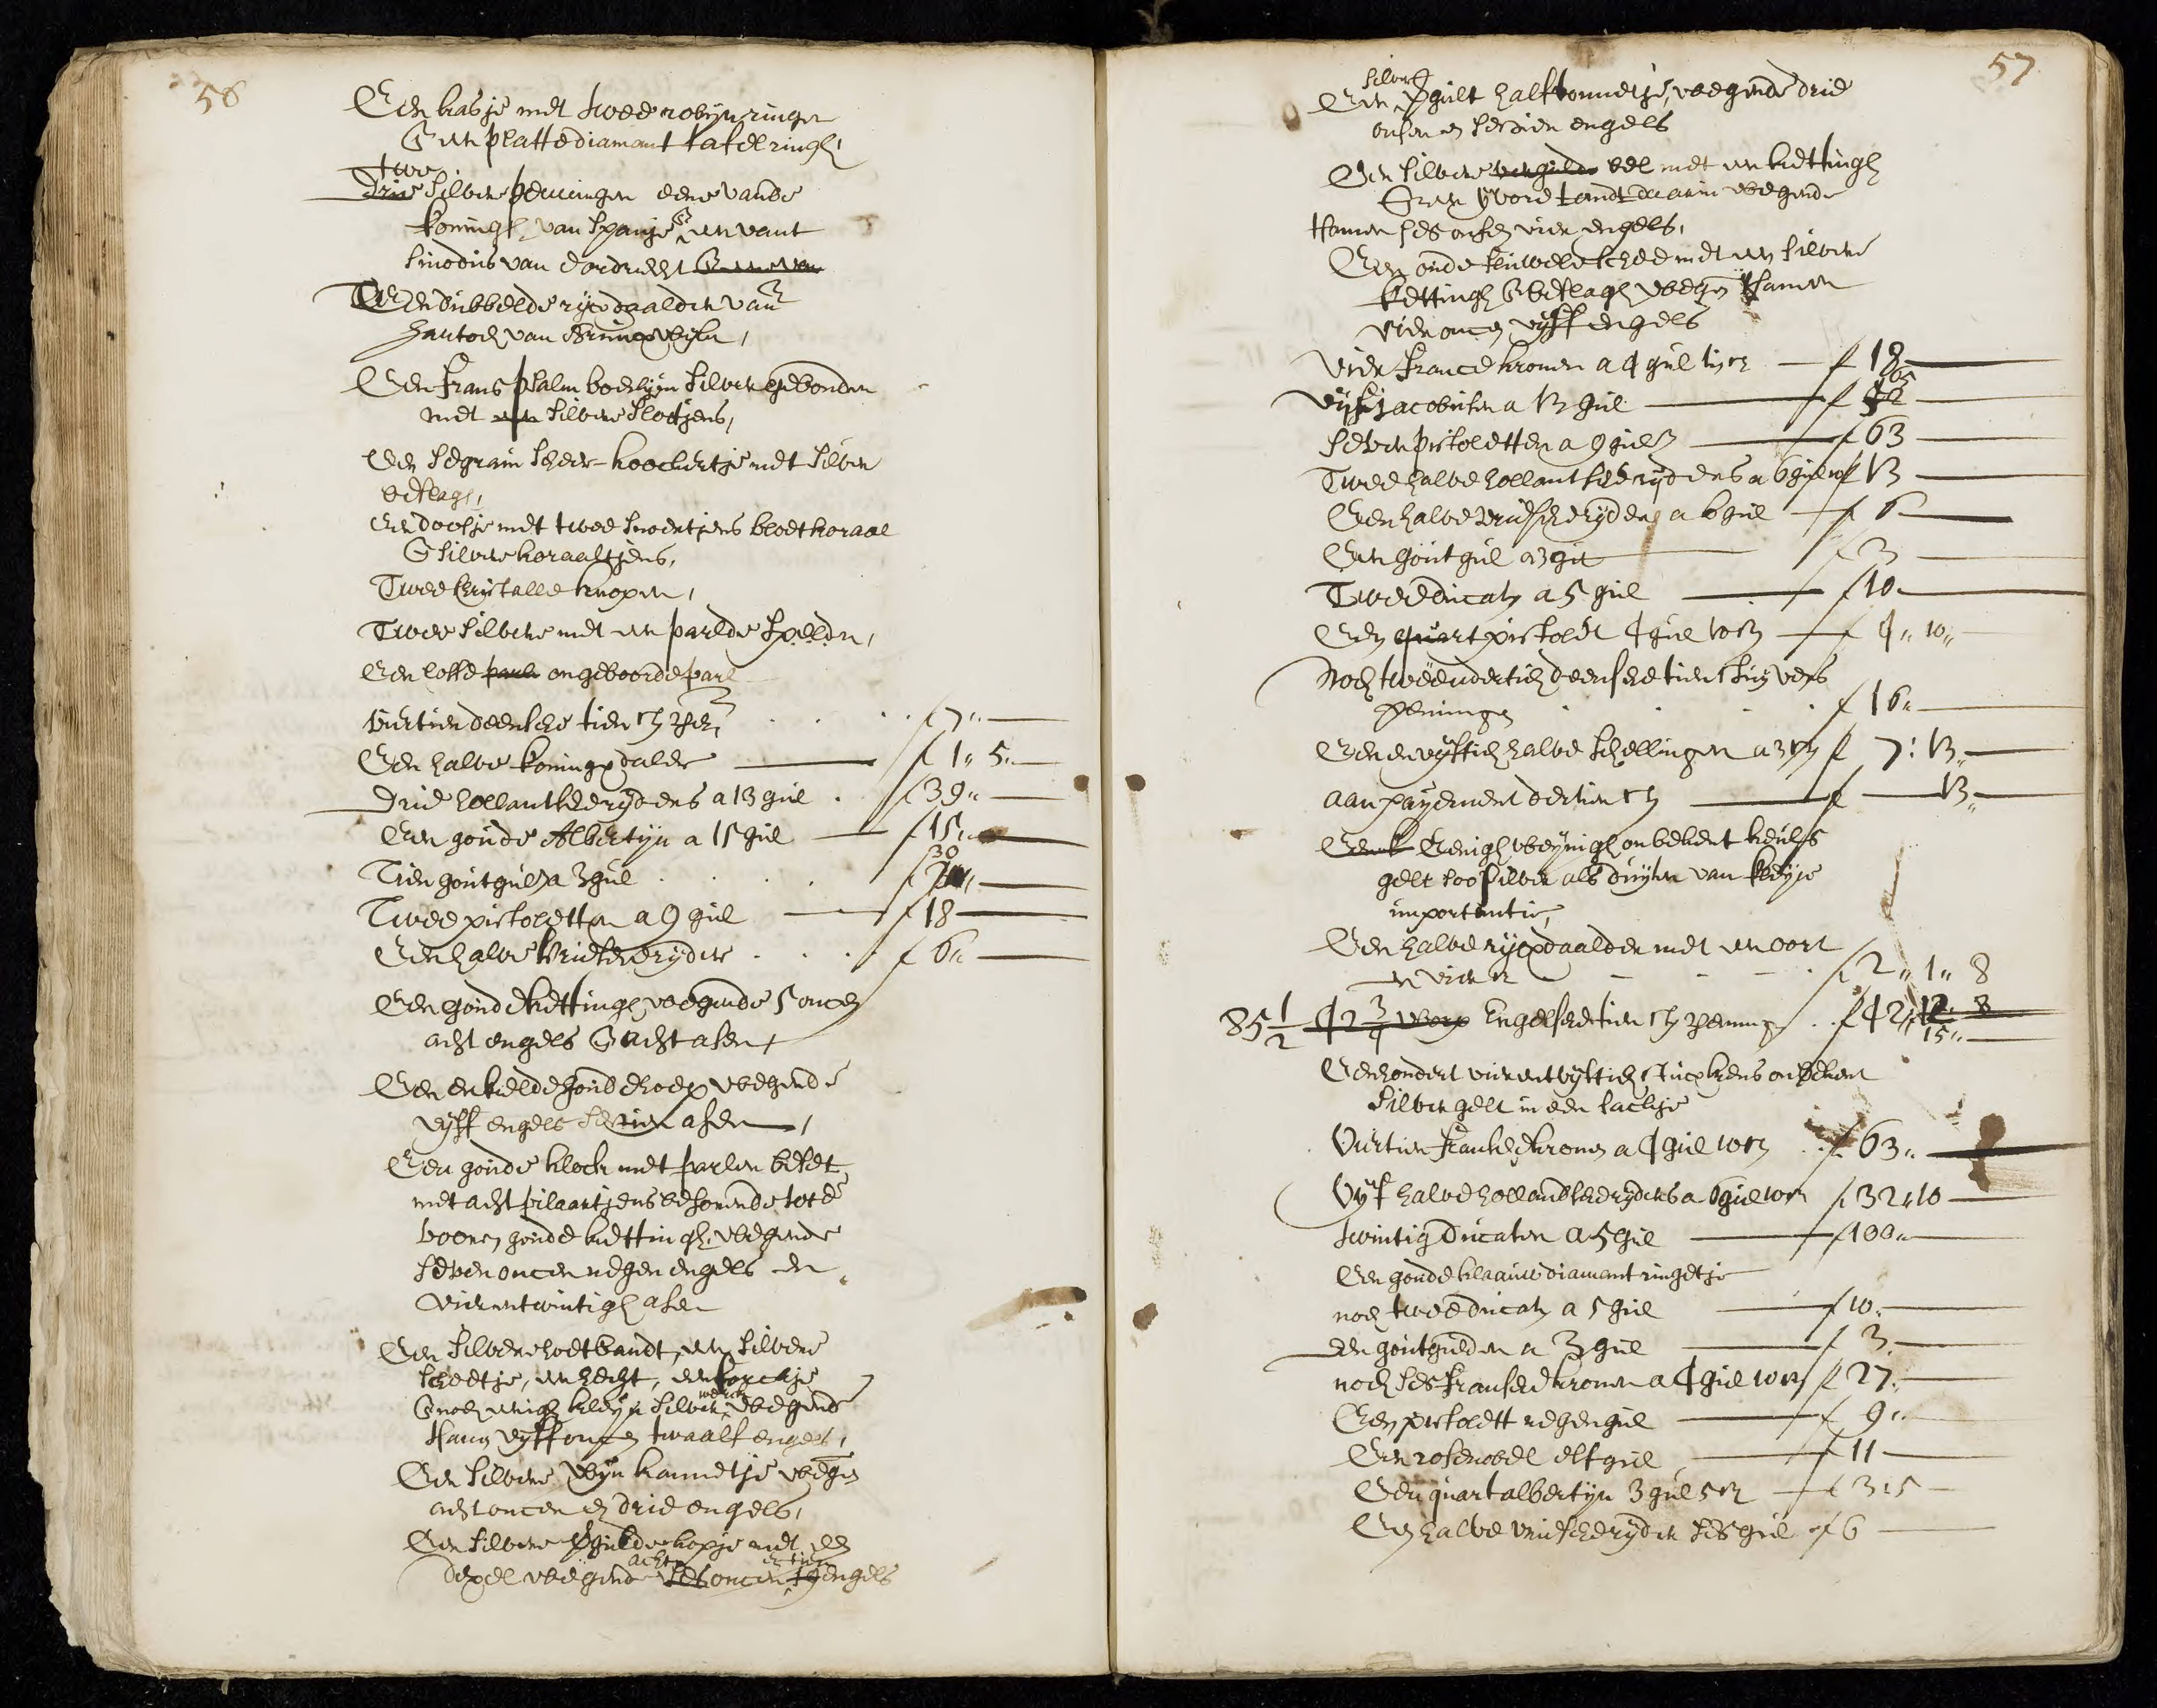 56
Een kasje met twee robijn ringen
& een platte diamant tafel ringh,
twe
drie silvere penningen eene vande
koningh van Spanje & een vant
sinodus van dordrecht & een van
Een dubbelde rycxdaalder van
hartoch van Brunswyk,
Een frans psalm boeckjen silver gebonden
met een silvere slootjens,
Een segrain scheer-koockertje met silver
beslagh,
Een doosje met twee snoertjens bloetkoraal
& silvere koraaltjens,
Twee kristalle knopen,
Twee silvere met een parlde spelden,
Een losse parle ongeboorde parl
viertien deensche tien st pen. f 7"
Een halve koninxdaler f 1" 5"
drie hollantsche ryders a 13 gul f 39"
Een goude Albertyn a 15 gul f 15"
30
Tien goutgul a 3 gul f
Twee pistoletten a 9 gul f 18
Een halve vriesche ryder f 6"
Een goude kettingh wegende 5 oncen
acht engels & acht asen,
Een enkelde goude hoep wegende
vyff engels asen,
Een goude klock met parlen beset
met acht pilaartjens behorende tot de
boven goude kettingh, wegende
seven oncen negen engels en
vierentwintigh asen
Een silvere hoetbandt, een silvere
scheetje, een hecht, een
werck
& noch enigh kleyn silver wegende
tsamen vyff oncen twaalf engels,
Een silvere wyn kannetje wegen
acht oncen en drie engels,
Een silvere vergulde kopje met een
acht
dexel wegende ses oncen engels
57
silver
Een vergult half tonnetje, wegende drie
onsen en engels
Een silvere vergulde bel met een kettingh
& een yvore tandt daarin wegende
tsamen ses onsen vier engels,
Een oude fluwele schee met een silvere
kettingh & beslagh wegen tsamen
vier oncen vyff engels
vier france kronen a 4 gul 10 st f 18
65
vyff jacobussen a 13 gul f
seven pistoletten a 9 gul f 63
Twee halve hollantsche ryders a 6 gul 10 f 13
Een halve vriesche ryder a 6 gul f 6
Een gout gul a 3 gul f 3
Twee ducaten a 5 gul f 10
Een quart pistolet 4 gul 10 st f 4" 10"
Noch tweendertich deensche tien stuyvers
penningen f 16"
Eenenvyftich halve schellingen a 3 st f 7: 13"
aan payement dertien st f 13"
Eenigh weynigh onbekent keuls
gelt soo silver als duyten van kleyne
importantie,
Een halve rycxdaalder met een oort
en vier st f 2" 1" 8
85 1/2 42 3/4 Engelsche tien st penning f 42" 12" 8
15"
Eenhondert vierentvyftich stucxkens onbekent
silver gelt in een sackje
Viertien fransche kronen a 4 gul 10 st f 63"
Vyf halve hollandsche ryders a 6 gul 10 st f 32" 10
twintig Ducaten a 5 gul f 100"
Een goude blaauw diamant ringetje
noch twee ducaten a 5 gul f 10"
een goutgulden a 3 gul f 3
noch ses fransche kronen a 4 gul 10 st f 27"
Een pistolett negen gul f 9"
Een rosenobel elf gul f 11
Een quart albertyn 3 gul 5 st f 3: 5
Een halve vriesche ryder ses gul f 6